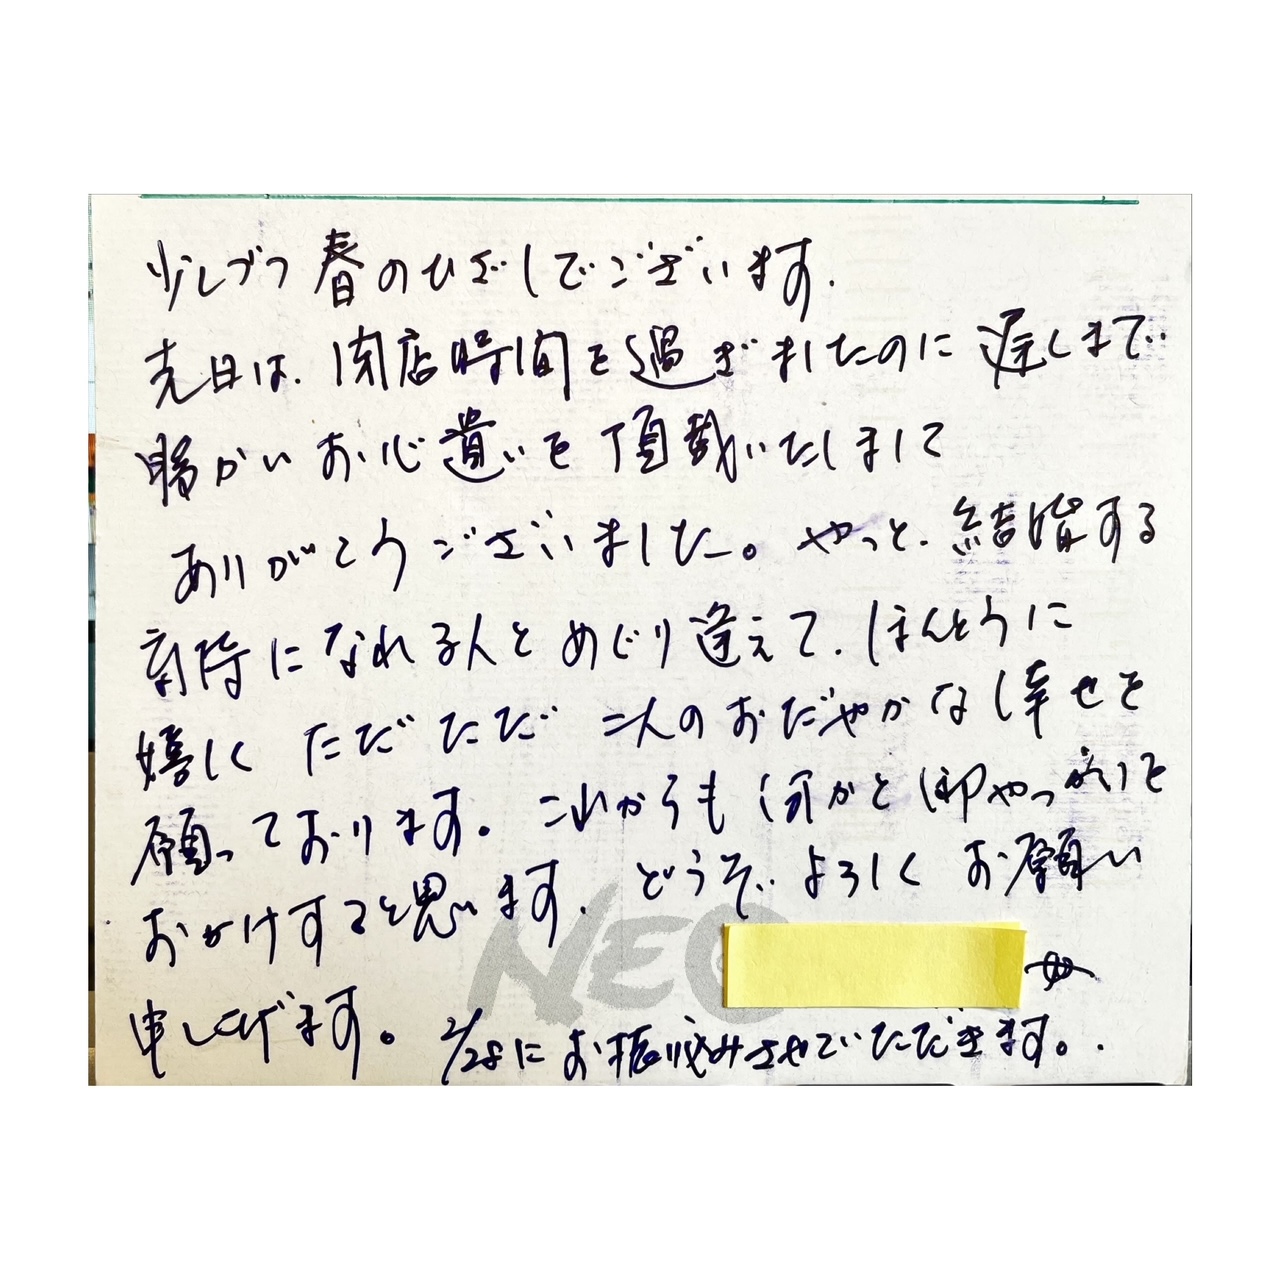 少しづつ春のひざしでございます.
先日は、閉店時間を過ぎましたのに遅くまで
暖かいお心遣いを頂戴いたしまして
ありがとうございました。やっと、結婚する
気持になれる人とめぐり逢えて、ほんとうに
嬉しく ただただ 二人のおだやかな幸せを
願っております。これからも何かと御やっかいを
おかけすると思います。どうぞ よろしく お願い
申し上げます。 2/28にお振り込みさせていただきます。.
NEO